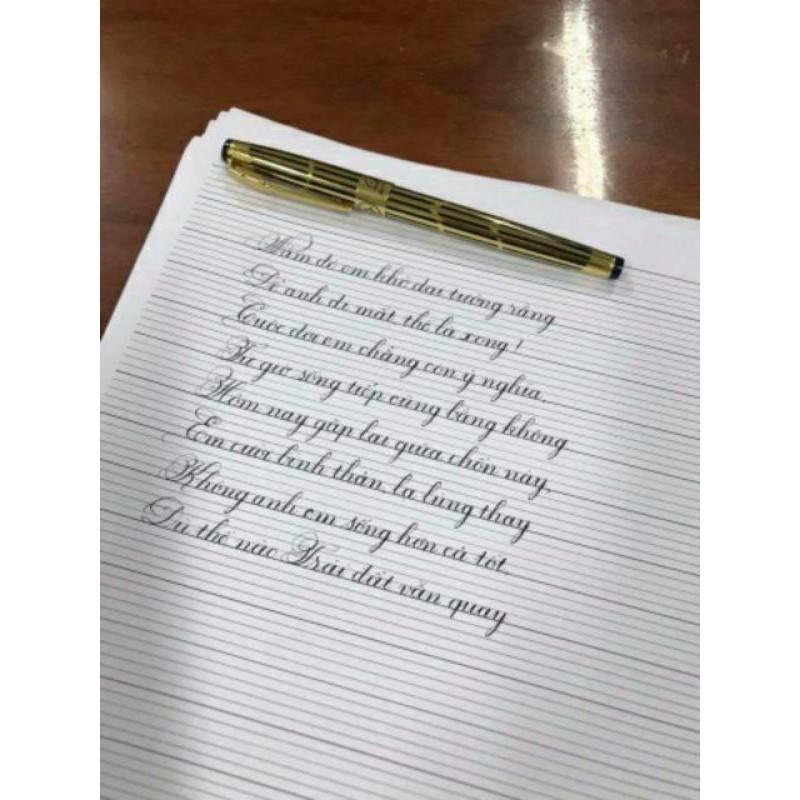 Năm đó em khờ dại tưởng rằng
Để anh đi mất, thế là xong!
Cuộc đời em chẳng còn ý nghĩa,
Từ giờ sống tiếp cũng bằng không
Hôm nay gặp lại giữa chốn này,
Em cười bình thản, lạ lùng thay
Không anh em sống hơn cả tốt,
Dù thế nào Trái đất vẫn quay